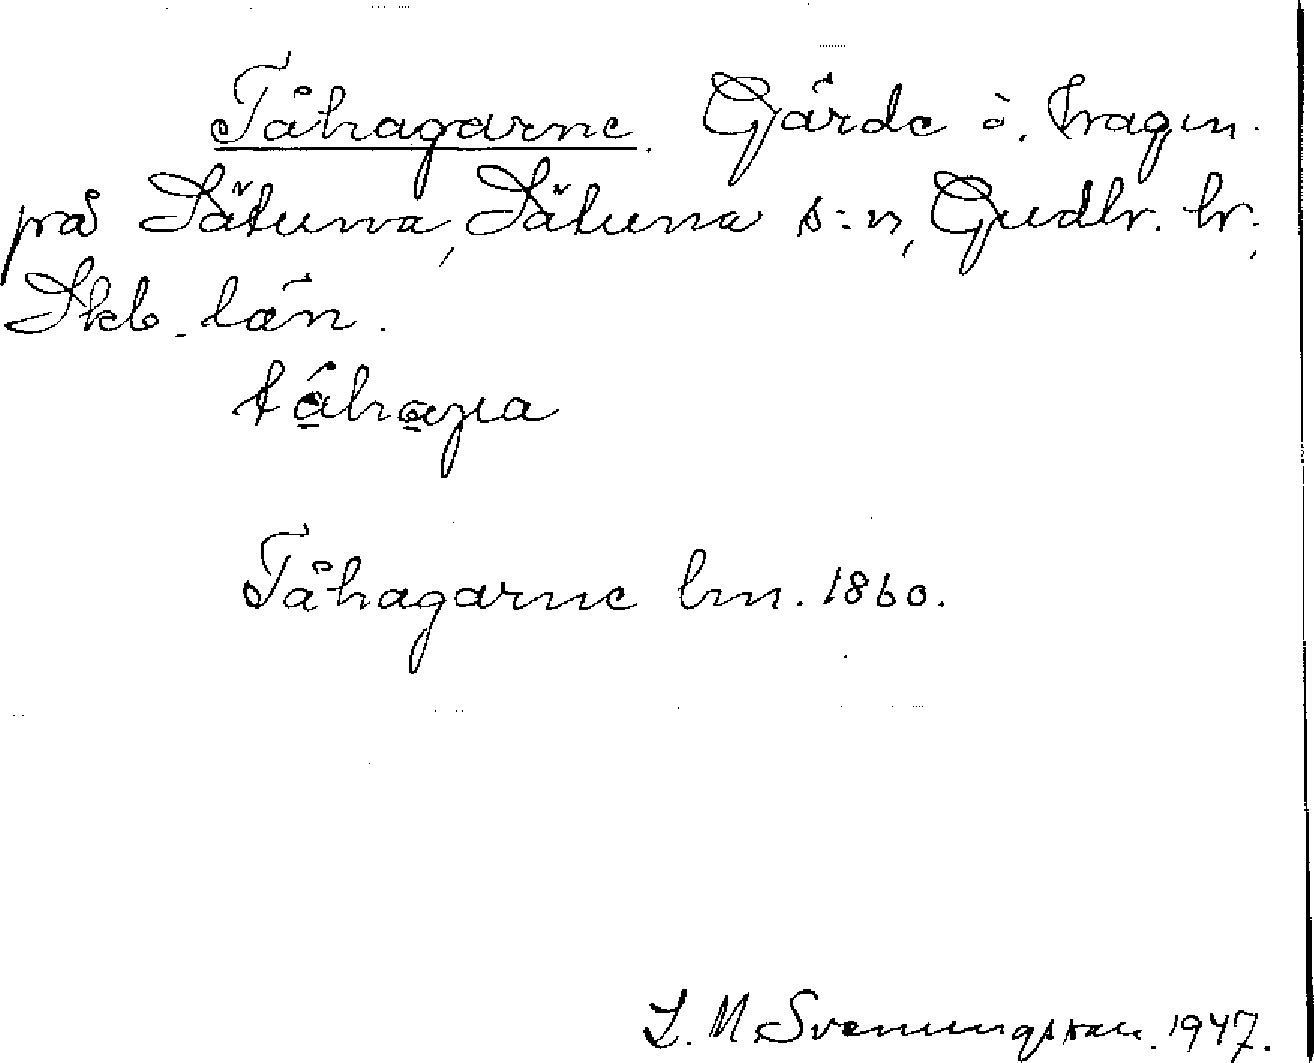 Tåhagarne. Gärde ö. hagen.
på Sätuna, Sätuna s:n, Gudh. hr.,
Skb. län.
tåhaga
Tåhagarne lm. 1860.
Svenungsson. 1947.